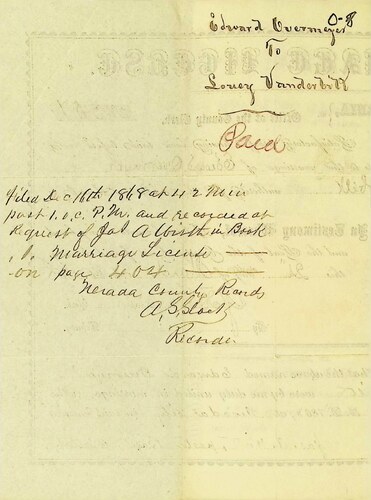 O-8
Edward Overmeyer
To
Louey Vanderbilt
Paid
Filed Dec 16th 1868 at 42 Min
past 1. o,c. P.M. and recorded at
request of Jas A Wirth in Book
1. Marriage License
on page 404
Nevada County Records
A,G,
Recorder